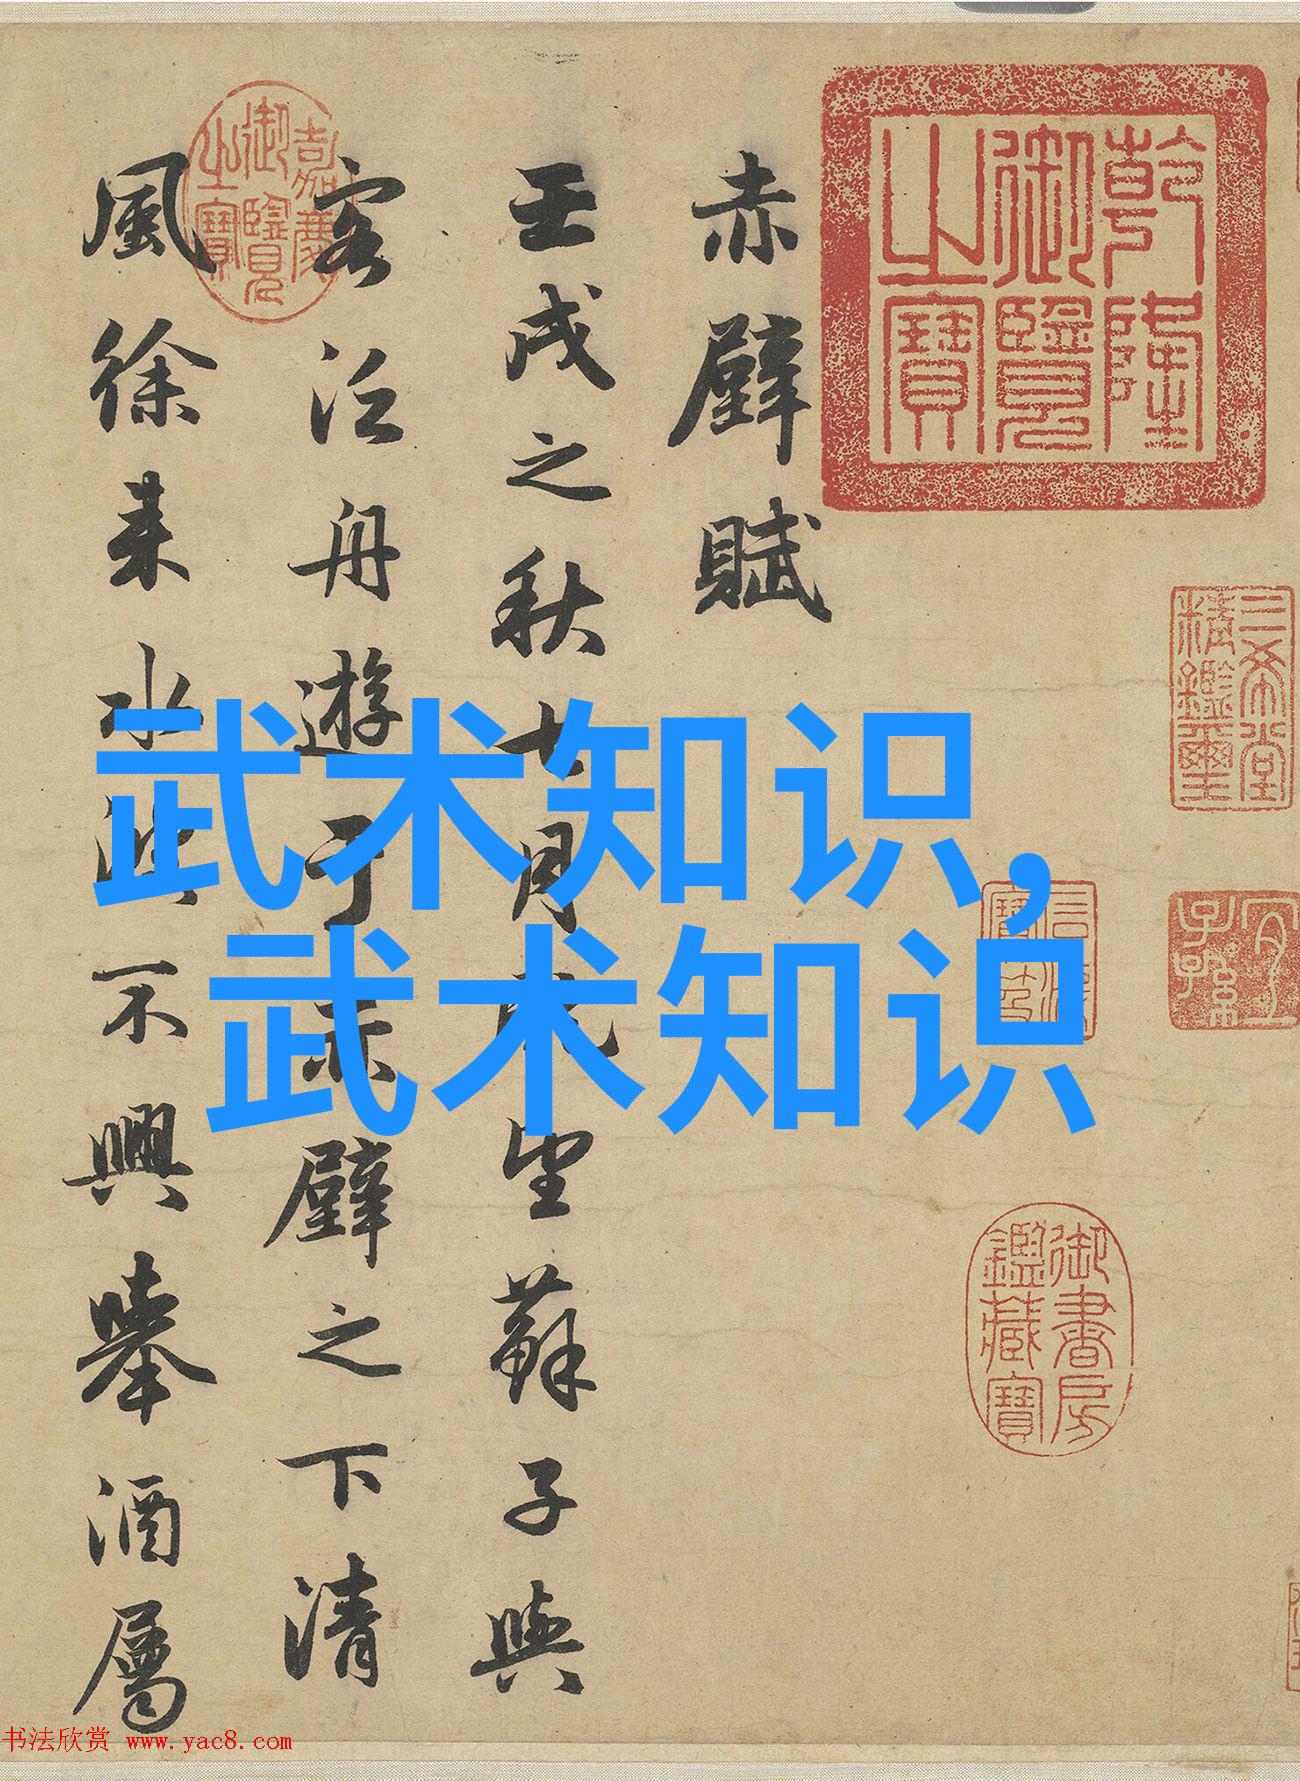 乾隆御覽之寶
三希堂精鑑璽
宜子孫
御書房鑑藏寶
赤壁賦
壬戌之秋七月既望蘇子與
客泛舟遊于赤壁之下清
嘉慶御覽之寶
風徐来水波不興舉酒屬
武术知识,
武术知识
书法欣赏 www.yac8.com